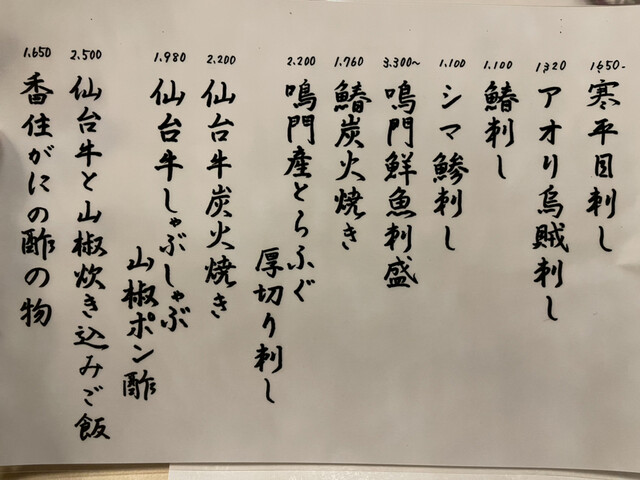 1650-
寒平目刺し
1320
アオリ烏賊刺し
1,100
鰆刺し
1,100
シマ鯵刺し
3,300〜
鳴門鮮魚刺盛
1,760
鰆炭火焼き
2,200
鳴門産とらふぐ
厚切り刺し
2,200
仙台牛炭火焼き
1,980
仙台牛しゃぶしゃぶ
山椒ポン酢
2,500
仙台牛と山椒炊き込みご飯
1,650
香住がにの酢の物